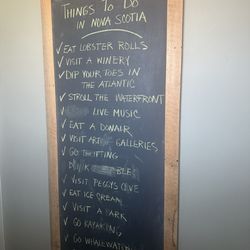 THINGS TO DO
IN NOVA SCOTIA
✓ EAT LOBSTER ROLLS
✓ VISIT A WINERY
✓ DIP YOUR TOES IN
THE ATLANTIC
✓ STROLL THE WATERFRONT
✓ LIVE MUSIC
✓ EAT A DONAIR
✓ VISIT GALLERIES
✓ GO THRIFTING
✓ VISIT PEGGYS COVE
✓ EAT ICE CREAM
✓ VISIT A PARK
✓ GO KAYAKING
✓ GO WHALEWATCHING